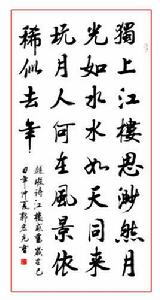 獨上江樓思渺然月
光如水水如天同來
玩月人何在風景依
稀似去年
趙嘏詩江樓感舊歲在己
年仲夏郭